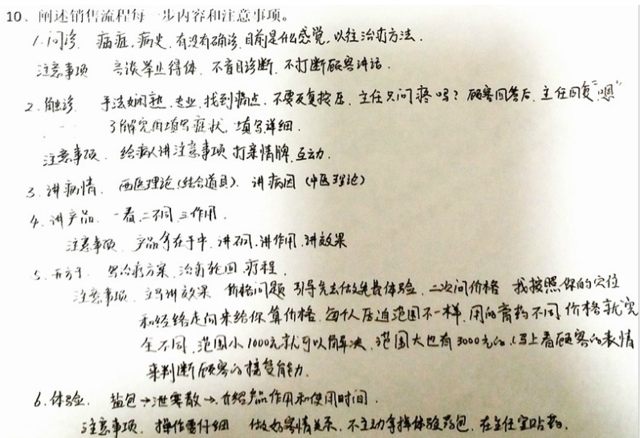 10、阐述销售流程每一步内容和注意事项。
1.问诊 痛症、病史、有没有确诊、目前是什么感觉,以往治疗方法.
注意事项 言谈举止得体、不盲目诊断、不打断顾客讲话.
2.触诊 手法娴熟、专业、找到痛点、不要反复按压、主任只问疼吗?顾客回答后,主任回复"嗯"
了解完再填写症状、填写详细.
注意事项、给病人讲注意事项 打亲情牌、互动.
3.讲病情. 西医理论(结合道具)、讲病因(中医理论)
4.讲产品、一看、二不同、三作用.
注意事项、产品拿在手中、讲不同、讲作用、讲效果
5.开方子. 写治疗方案、治疗范围、疗程.
注意事项、主写讲效果 价格问题 引导先去做免费体验、二次问价格 我按照你的穴位
和经络走向来给你算价格、每个人压迫范围不一样、用的膏药不同,价格就完
全不同,范围小1000元就可以解决、范围大也有3000元的.(马上看顾客的表情
来判断顾客的接受能力.
6.体验、盐包→泄寒散→介绍产品作用和使用时间.
注意事项、操作要仔细 做好客情关系、不主动拿掉体验药包、在主任室贴药.